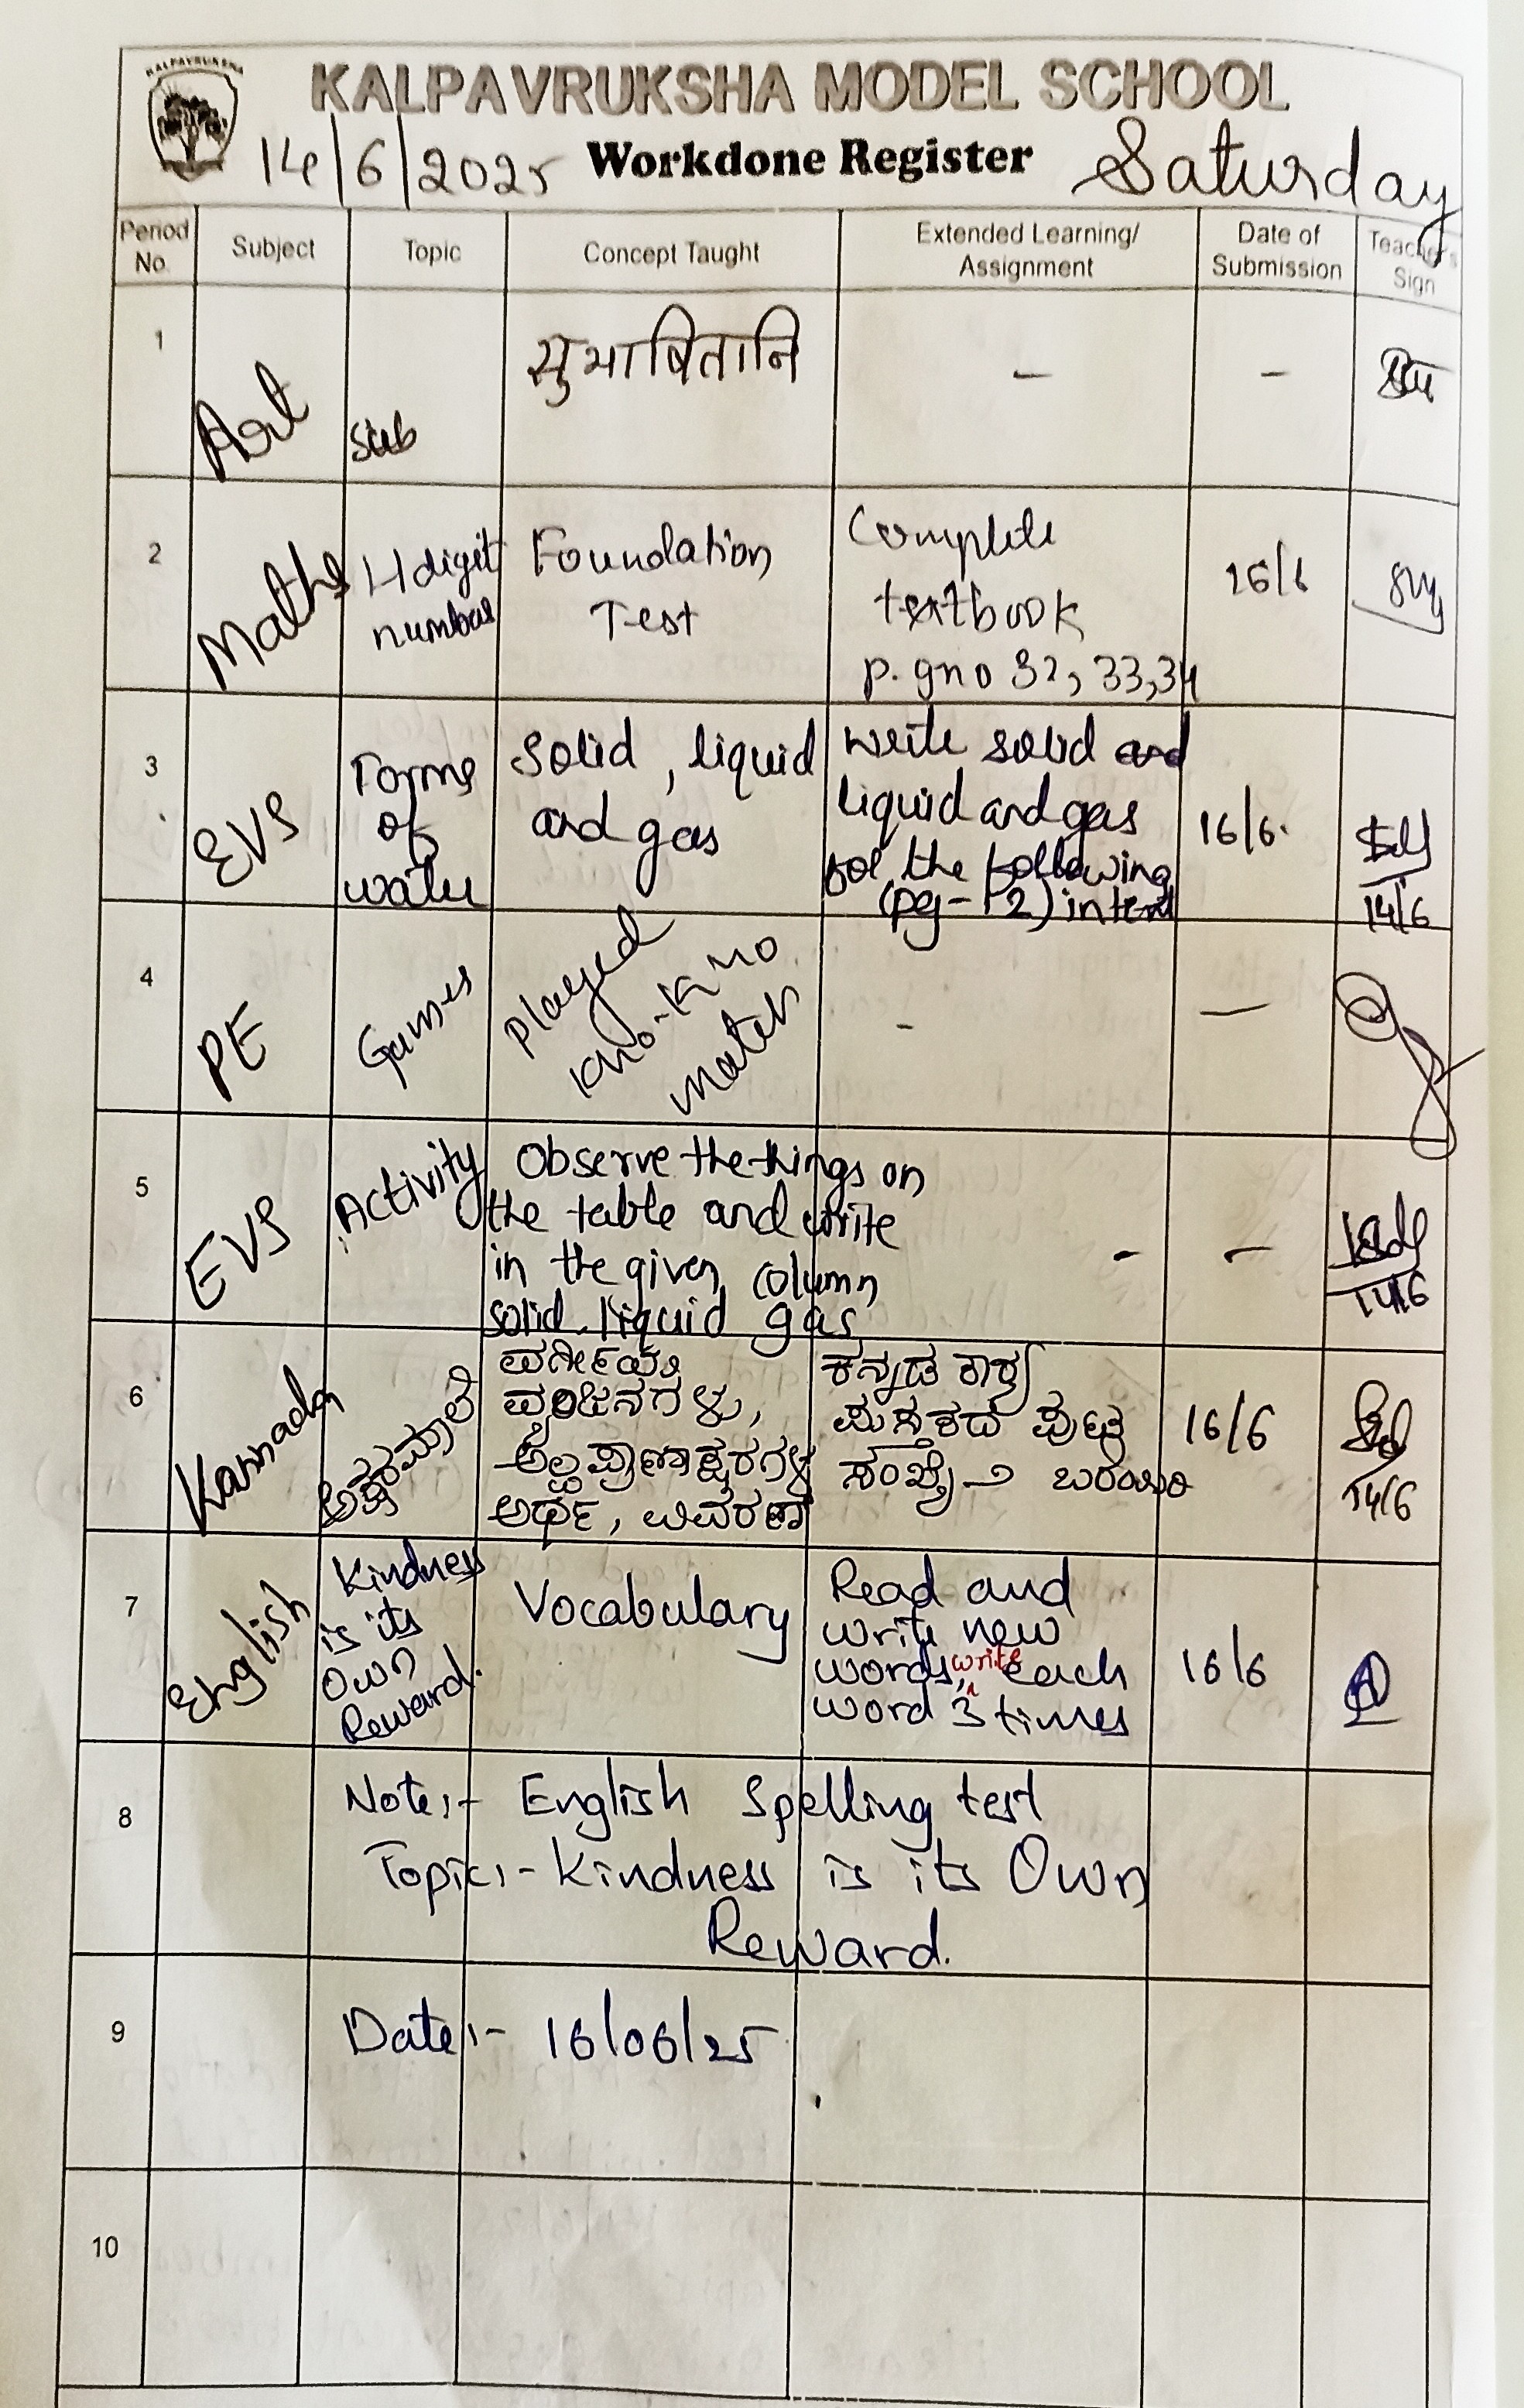 KALPAVRUKSHA
KALPAVRUKSHA MODEL SCHOOL
14/6/2025 Workdone Register Saturday
Period No. Subject Topic Concept Taught Extended Learning/ Assignment Date of Submission Teacher's Sign
1 Art Sub सुभाषितानि - -
2 Maths 4 digit Foundation Complete 16/6
number Test textbook
p.gno 32, 33,34
3 EVS Forms Solid, liquid write solid and
of and gas liquid and gas 16/6.
water for the following
(pg-12) in text 14/6
4 PE Games Played - -
Kho-Kho
match
5 EVS Activity Observe the things on
the table and write
in the given column - -
solid. liquid gas 14/6
6 Kannada ಅಕ್ಷರಮಾಲೆ ವರ್ಗೀಯ ಕನ್ನಡ ಕಾರ್ಯ
ವ್ಯಂಜನಗಳು, ಪುಸ್ತಕದ ಪುಟ 16/6
ಅಲ್ಪಪ್ರಾಣಾಕ್ಷರಗಳ ಸಂಖ್ಯೆ-೨ ಬರೆಯಿರಿ
ಅರ್ಥ, ವಿವರಣೆ 14/6
7 English Kindness Vocabulary Read and
is its write new
Own words, write each 16/6
Reward. word 3 times
8 Note:- English Spelling test
Topic:- Kindness is its Own
Reward.
9 Date:- 16/06/25
10